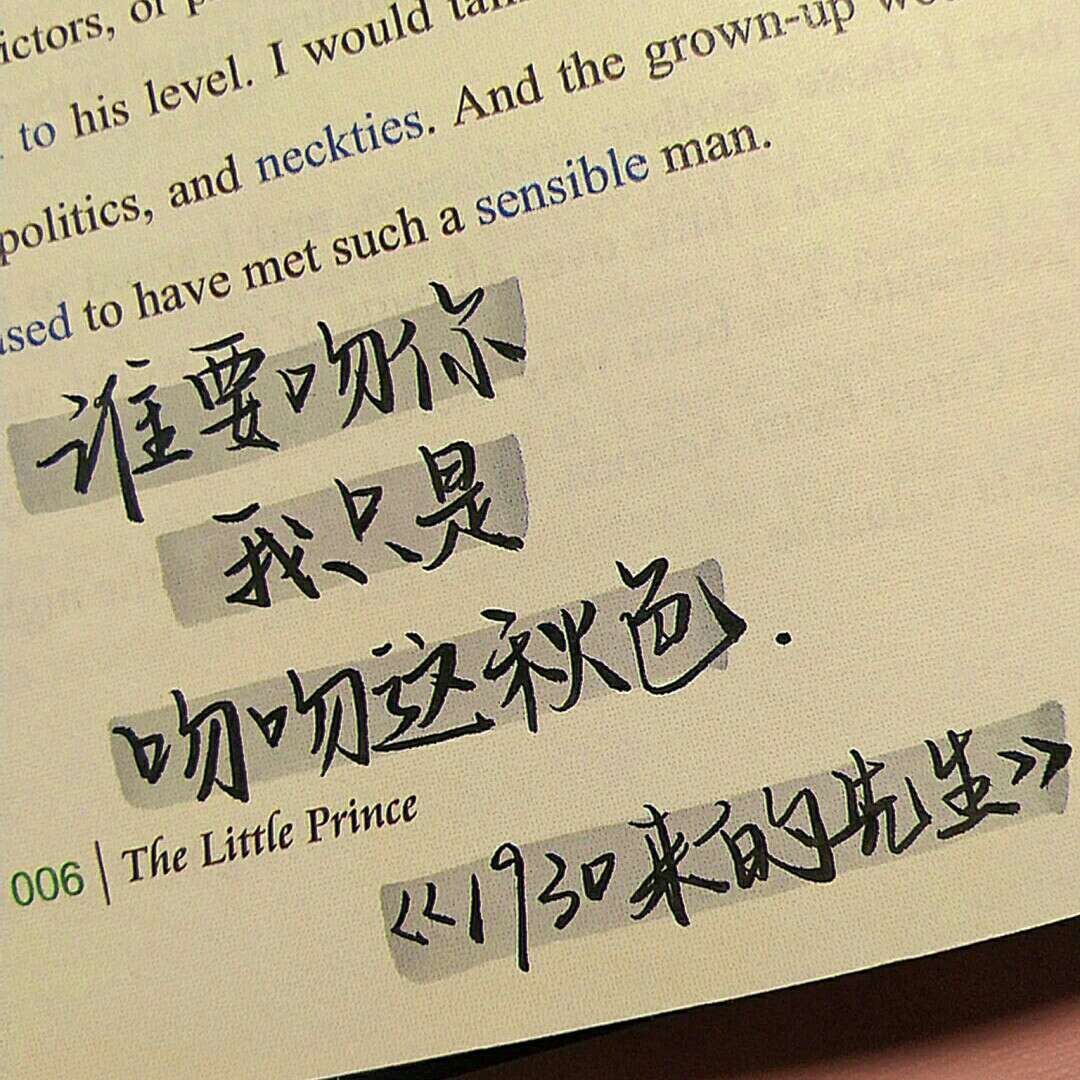 ictors, or
to his level. I would
politics, and neckties. And the grown-up
used to have met such a sensible man.
谁要吻你
我只是
吻吻这秋色.
006 | The Little Prince
《1930来的先生》